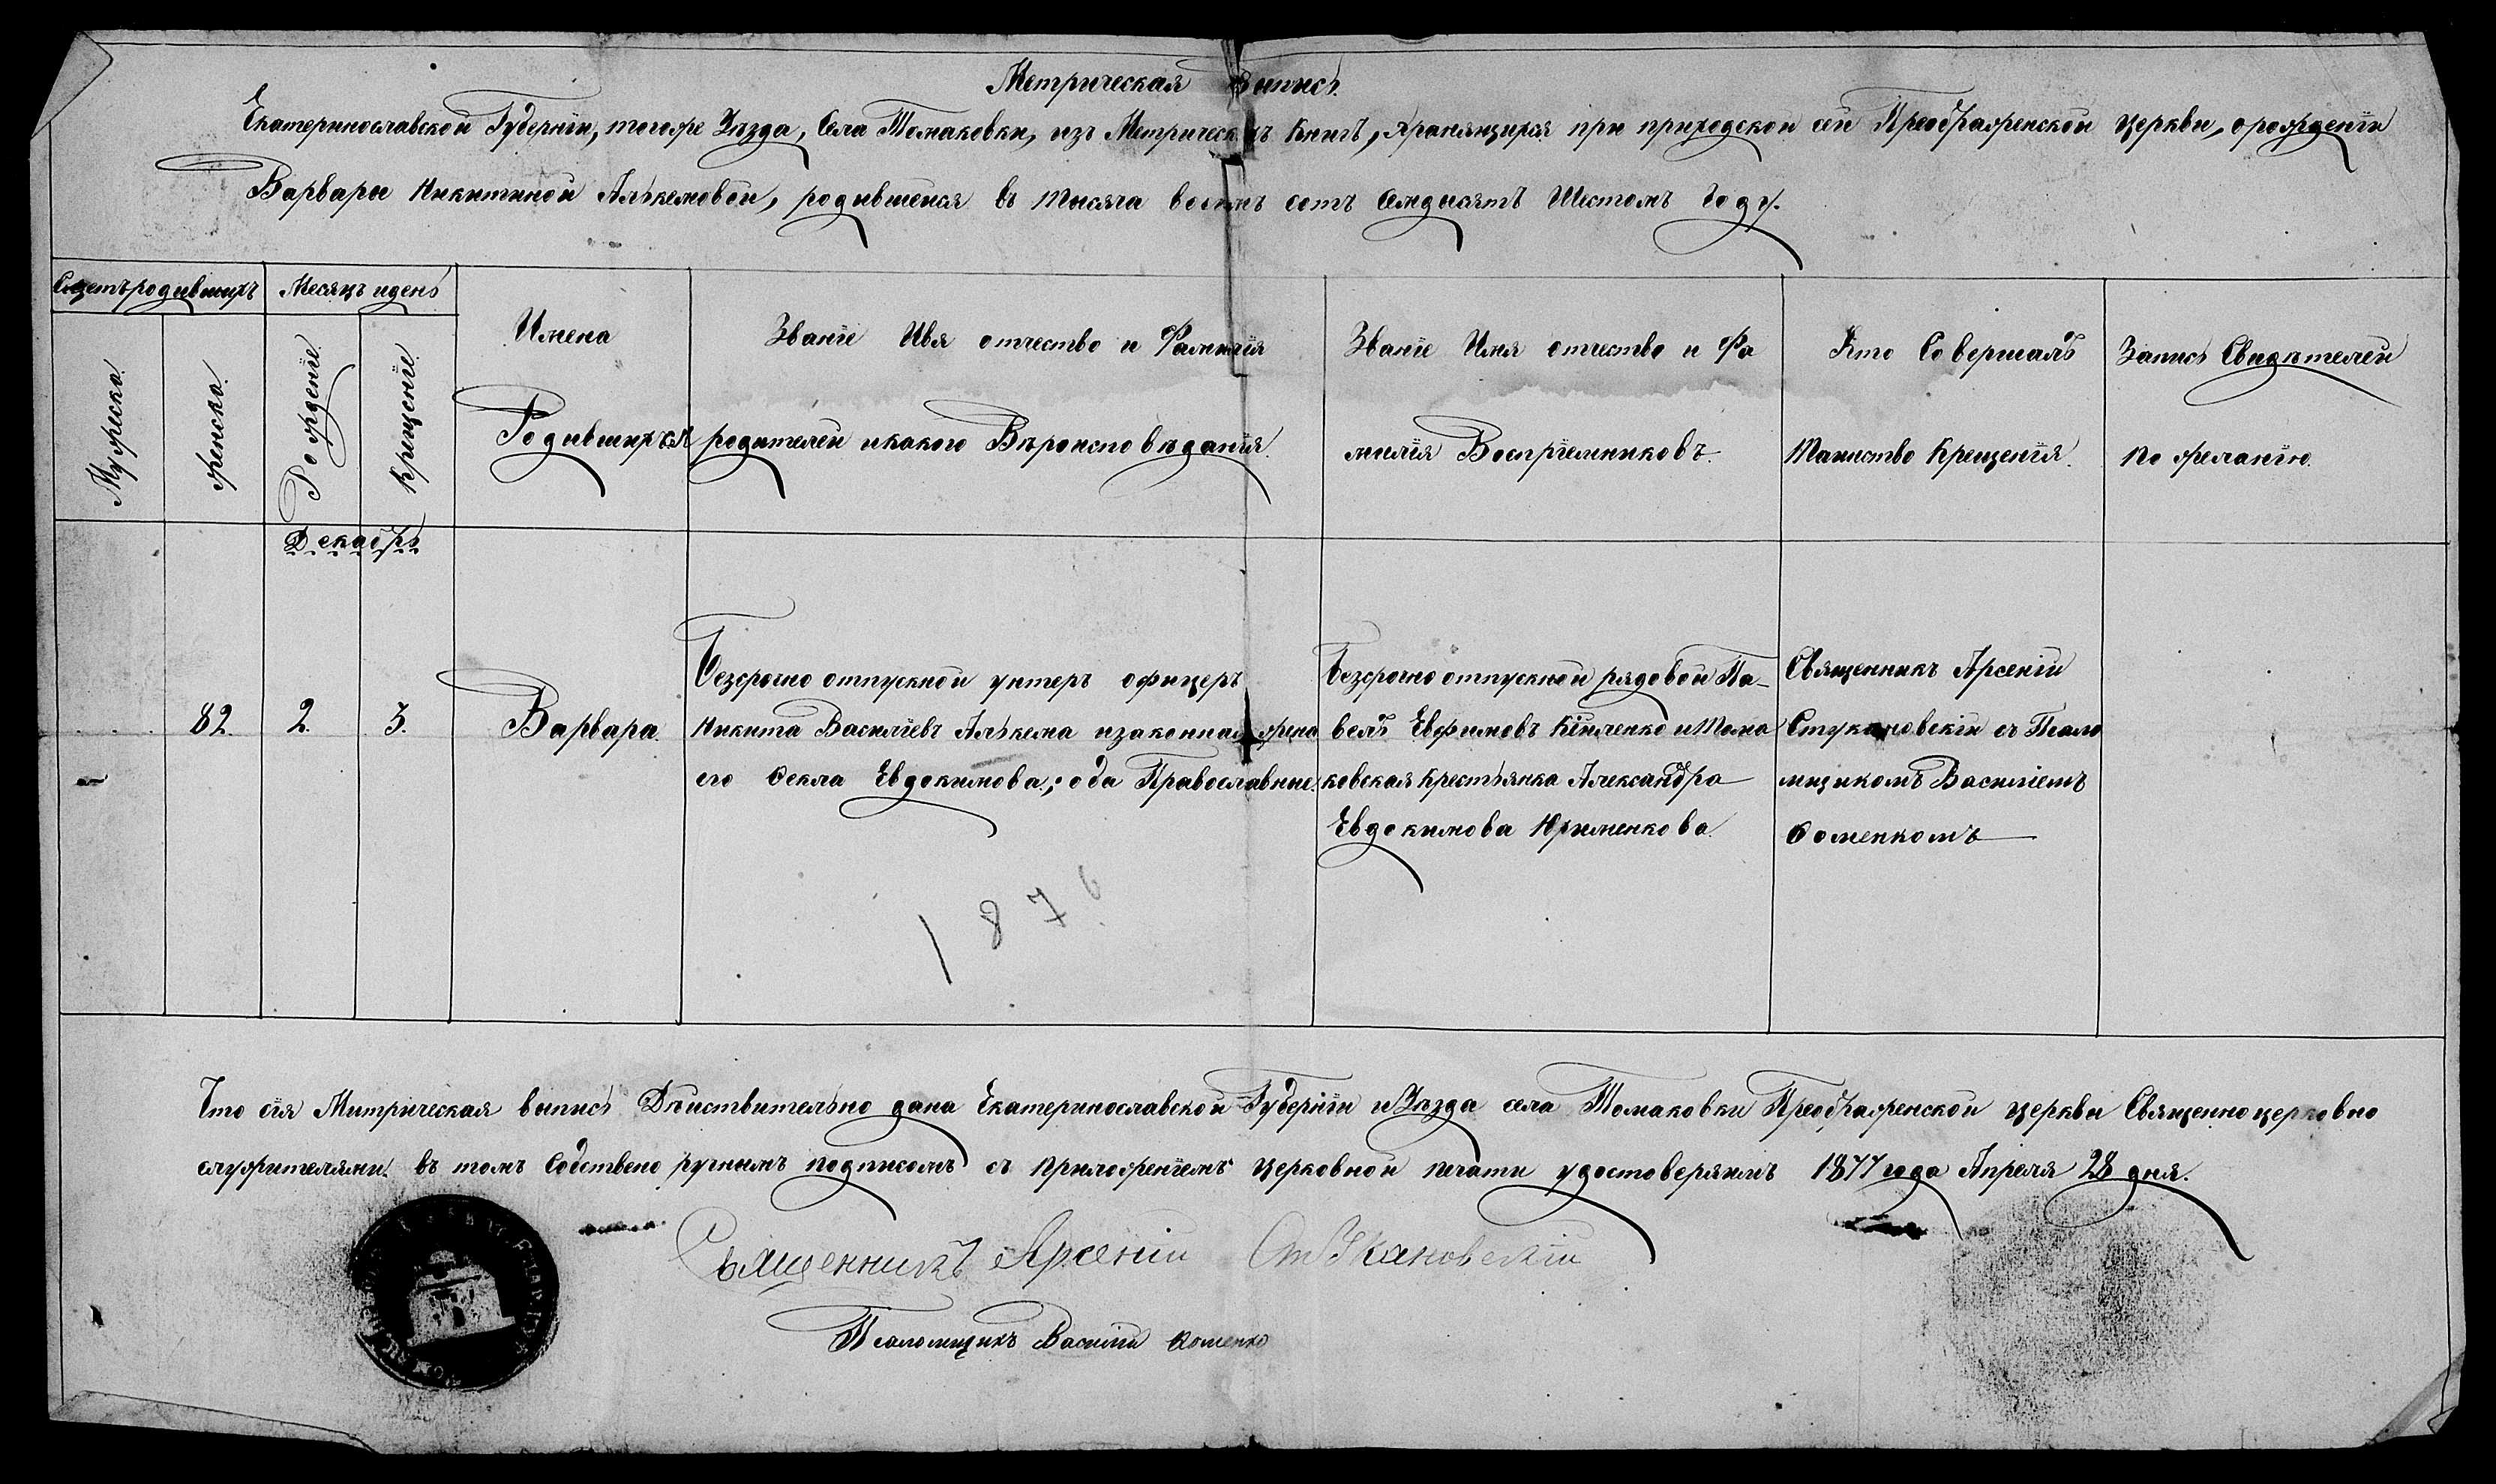 Метрическая Выпись.
Екатеринославской Губернiи, тогоже Уѣзда, Села Томаковки, изъ Метрическихъ Книгъ, хранящихся при приходской сей Преображенской Церкви, орожденiи
Варвары Никитиной Алькемовой, родившейся въ Тысяча восемъ сотъ Семдисятъ Шестомъ Году.
Сщетъ родившихъ
Месяцъ идень
Мужеска.
женска.
Рожденiе
Крещенiе.
Имена
Родившихся
Званiе Имя отчество и Фамилiя
родителей икакого Вѣроисповѣданiя.
Званiе Имя отчество и Фа
милiя Воспрiемниковъ.
Кто Совершалъ
Таинство Крещенiя.
Запись Свидѣтелей
По желанiю.
Декабрь
82. 2. 3. Варвара.
Безсрочно отпускной унтеръ офицеръ
Никита Василiевъ Алькема изаконная жена
его Ѳекла Евдокимова; оба Православные.
Безсрочно отпускной рядовой Па-
велъ Евфимовъ и Тома
ковская Крестьянка Александра
Евдокимова
Священникъ Арсенiй
Стукановскiй съ Псало
мщикомъ Василiемъ
Ѳоменкомъ
1876
Что сiя Митрическая выпись Дѣйствительно дана Екатеринославской Губернiи и Уѣзда села Томаковки Преображенской церкви Священноцерковно
служителями. въ томъ Собствено ручнымъ подписомъ съ приложенiемъ Церковной печати удостоверяимъ 1877 года Апреля 28 дня.
Священникъ Арсенiй Стукановскiй
Псаломщикъ Василiй Ѳоменко